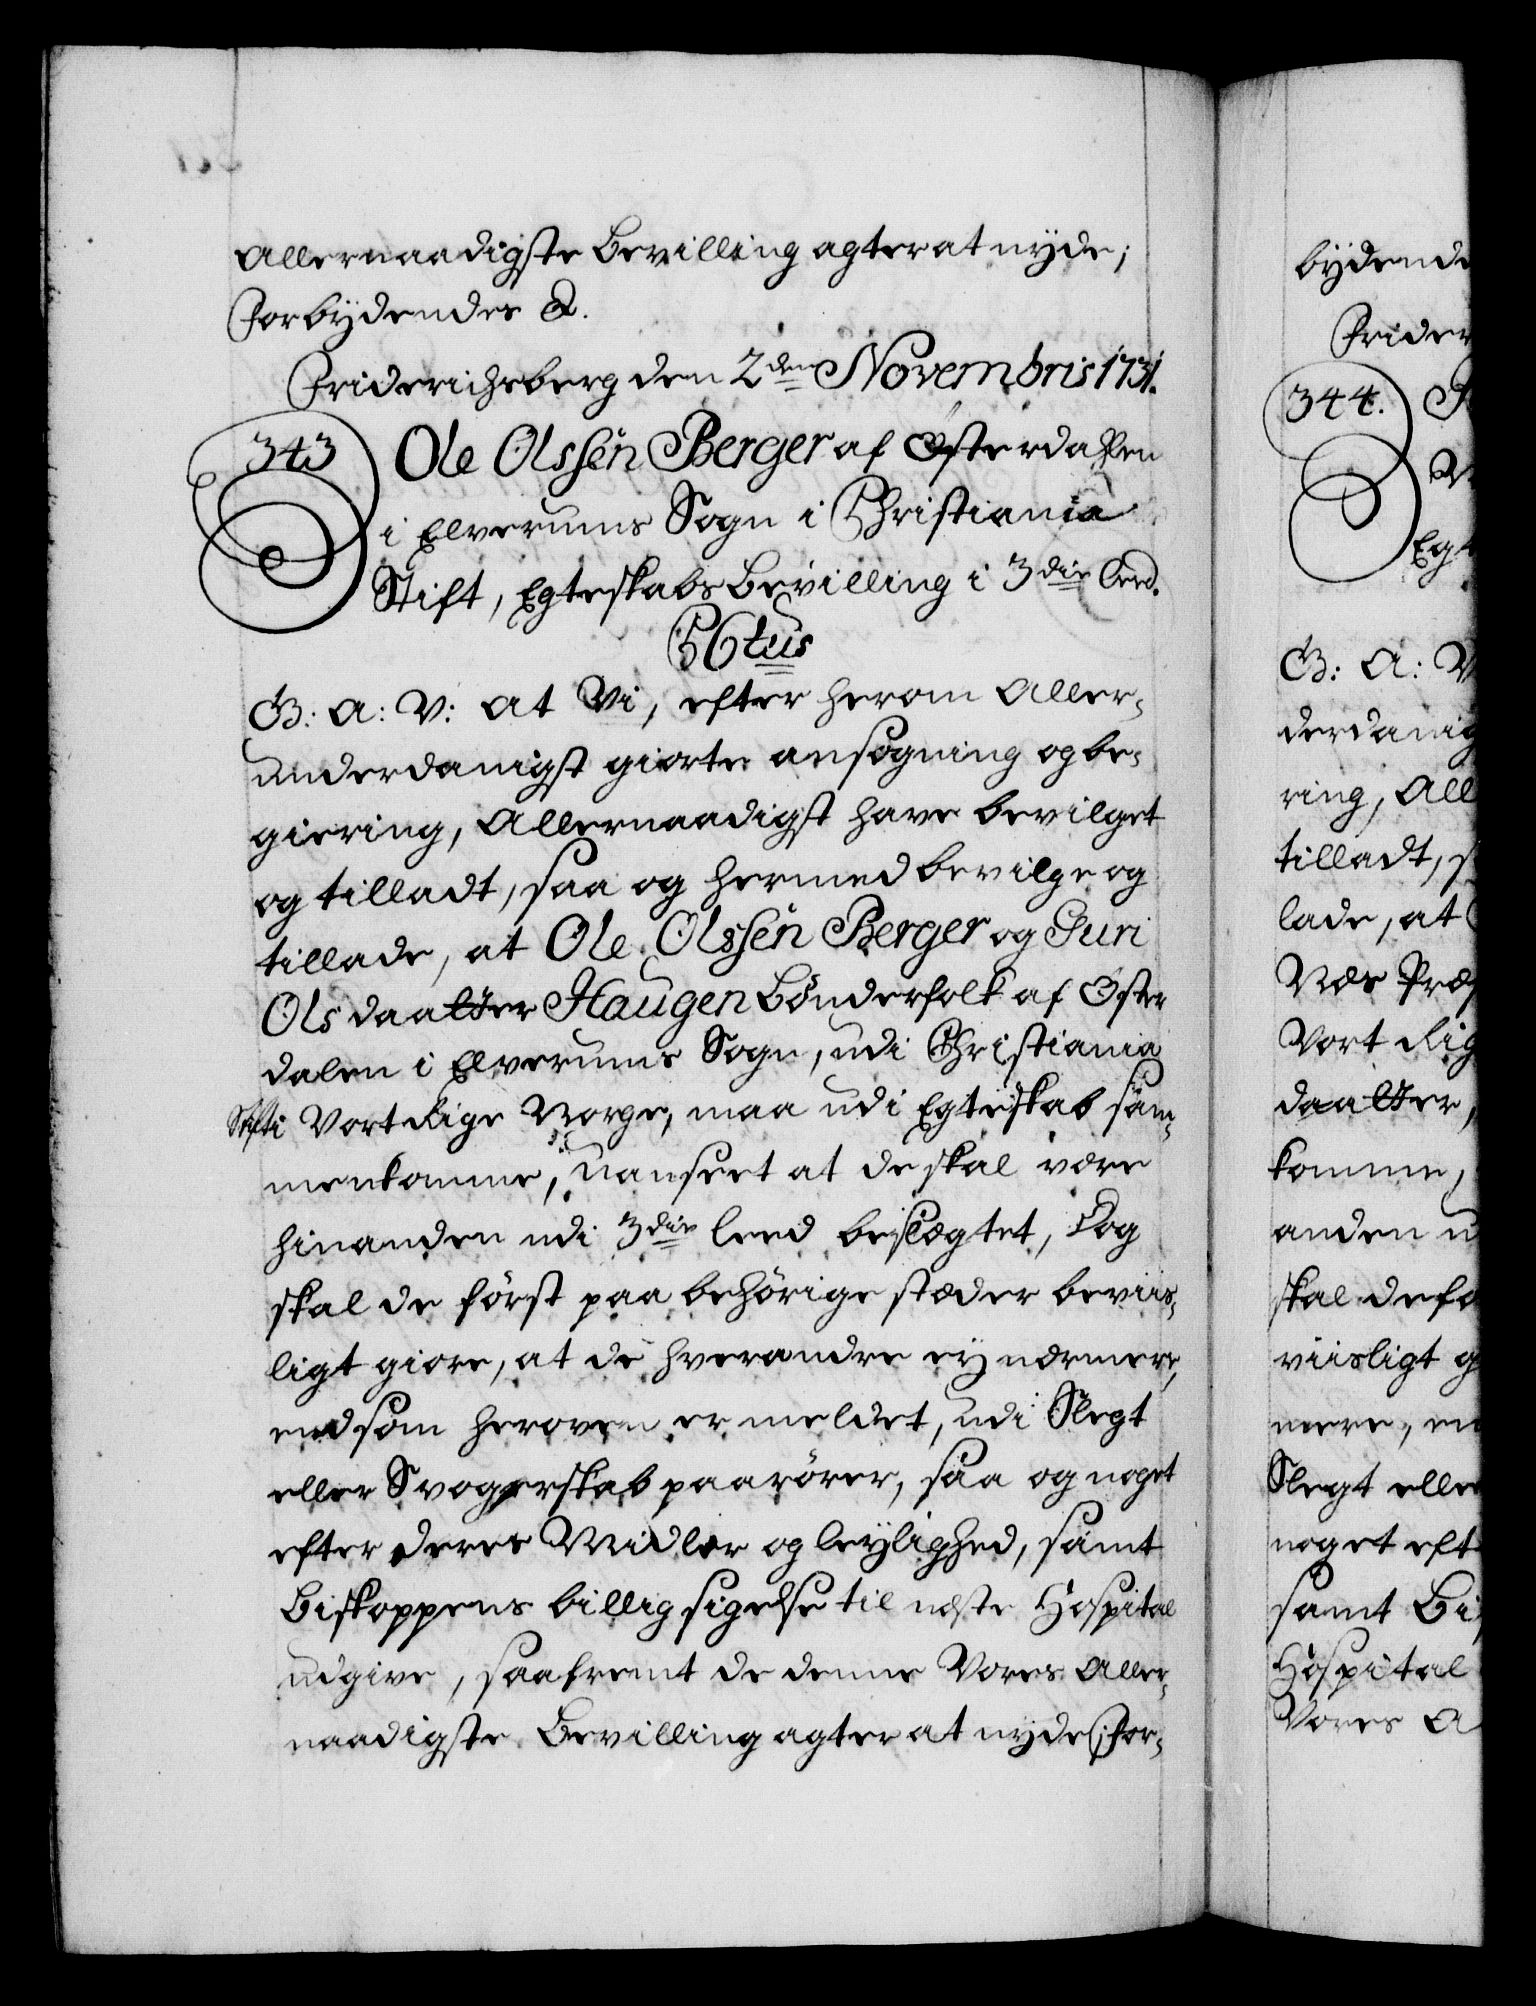 Allernaadigste Bevilling agter at nyde;
Forbydendes &.
Friderichsberg den 2den Novembris 1731.
343
Ole Olssen Berger af Østerdahlen
i Elverums Sogn i Christiania
Stift, Egteskabs Bevilling i 3die Leed.
C 6tus
G: A: V: at Vi, efter herom Aller-
underdanigst giorte ansøgning og be-
giering, Allernaadigst have bevilget
og tilladt, saa og hermed bevilge og
tillade, at Ole Olssen Berger og Guri
Olsdaatter Haugen Bønderfolk af Øster
dalen i Elverums Sogn, udi Christiania
Stift i Vort Rige Norge, maa udi Egteskab sam-
menkomme, uanseet at de skal være
hinanden udi 3die leed beslægtet, Dog
skal de først paa behørige stæder beviis-
ligt giøre, at de hverandre ey nærmere,
end som heroven er meldet, udi Slegt
eller Svogerskab paarører, saa og noget
efter deres Midler og leylighed, samt
Biskoppens billig sigelse til næste Hospital
udgive, saafremt de denne Vores Aller-
naadigste Bevilling agter at nyde; For-
bydende
Frider
344.
Egt
G: A: V
derdanig
ring, All
tilladt, s
lade, at
Næs Præs
Vort Rig
daatter,
komme,
anden u
skal de fø
viisligt g
mere, en
Slegt eller
noget eft
samt Bi
Hospital
Vores A